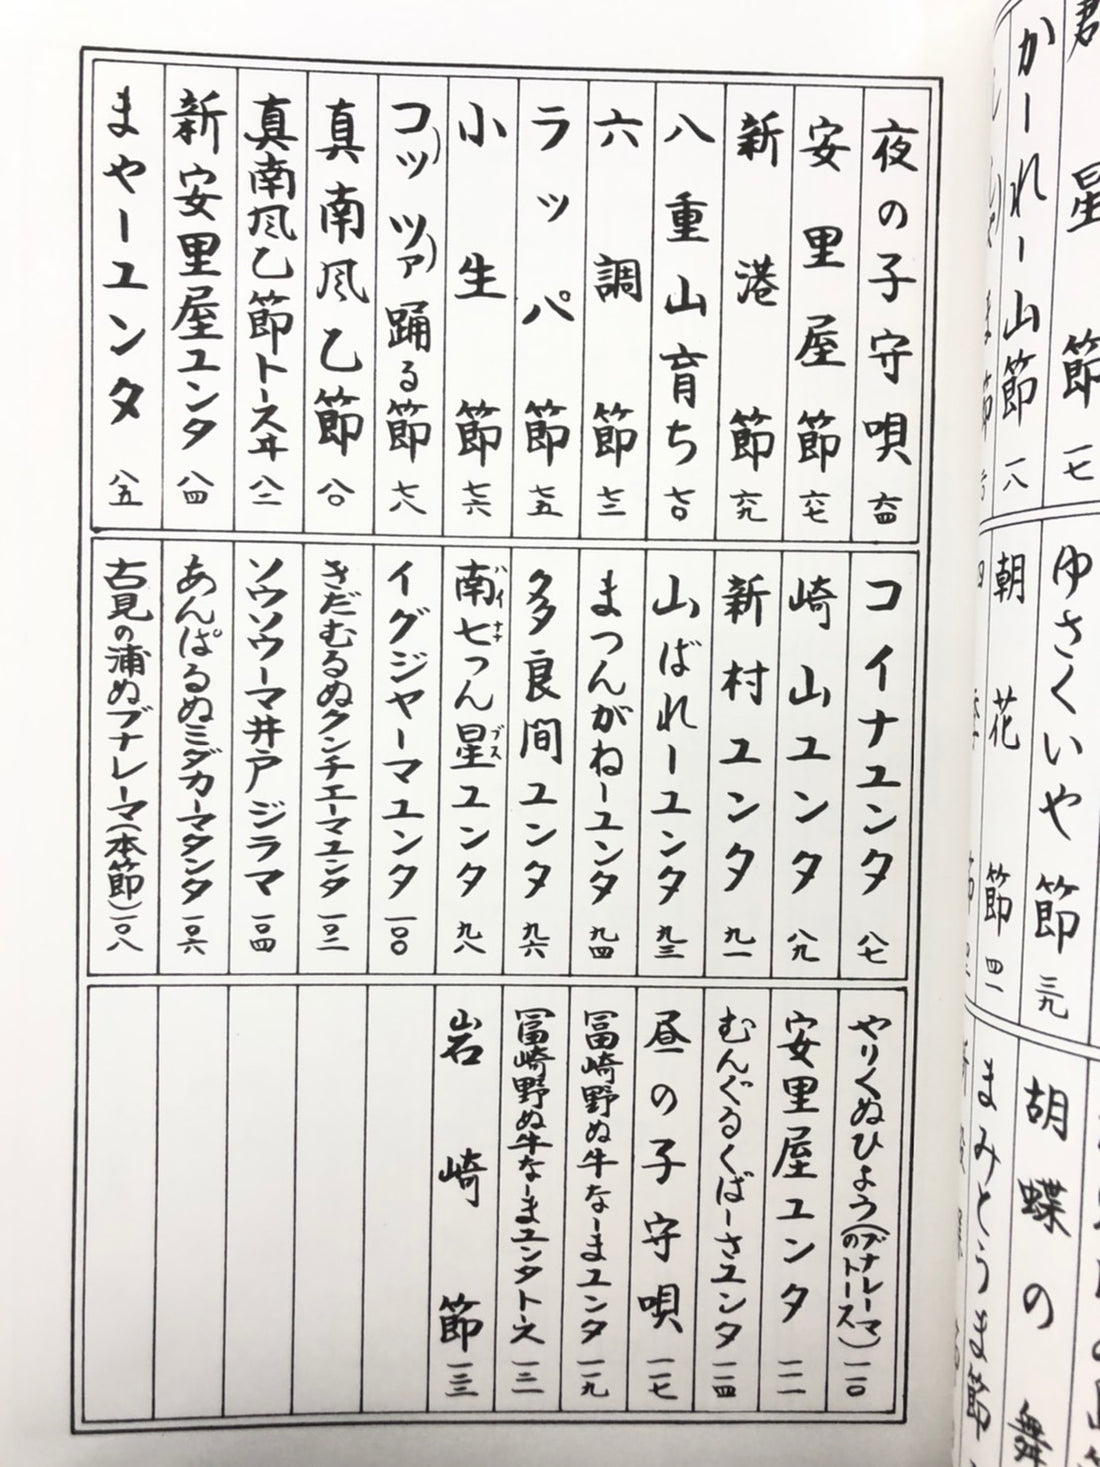 夜の子守唄 六四
安里屋節 六七
新港節 六九
八重山育ち 七〇
六調節 七三
ラッパ節 七五
小生節 七六
コッツァ踊る節 七八
真南風乙節 八〇
真南風乙節トースヰ 八二
新安里屋ユンタ 八四
まやーユンタ 八五
コイナユンタ 八七
崎山ユンタ 八九
新村ユンタ 九一
山ばれーユンタ 九三
まつんがねーユンタ 九四
多良間ユンタ 九六
南七つん星ユンタ 九八
イグジャーマユンタ 一〇〇
きだむるぬクンチェーマユンタ 一〇二
ソウソウーマ井戸ジラマ 一〇四
あんぱるぬミダガーマタンタ 一〇六
古見の浦ぬブナレーマ(本節) 一〇八
やりくぬひよう(ブナレーマのトースイ) 一一〇
安里屋ユンタ 一一一
むんぐるくばーさユンタ 一一四
昼の子守唄 一一七
冨崎野ぬ牛なーまユンタ 一一九
冨崎野ぬ牛なーまユンタトース 一二一
岩崎節 一二三
星節 一七
かーれー山節 一八
ゆさくいや節 三九
朝花節 四一
胡蝶の舞
まみとうま節